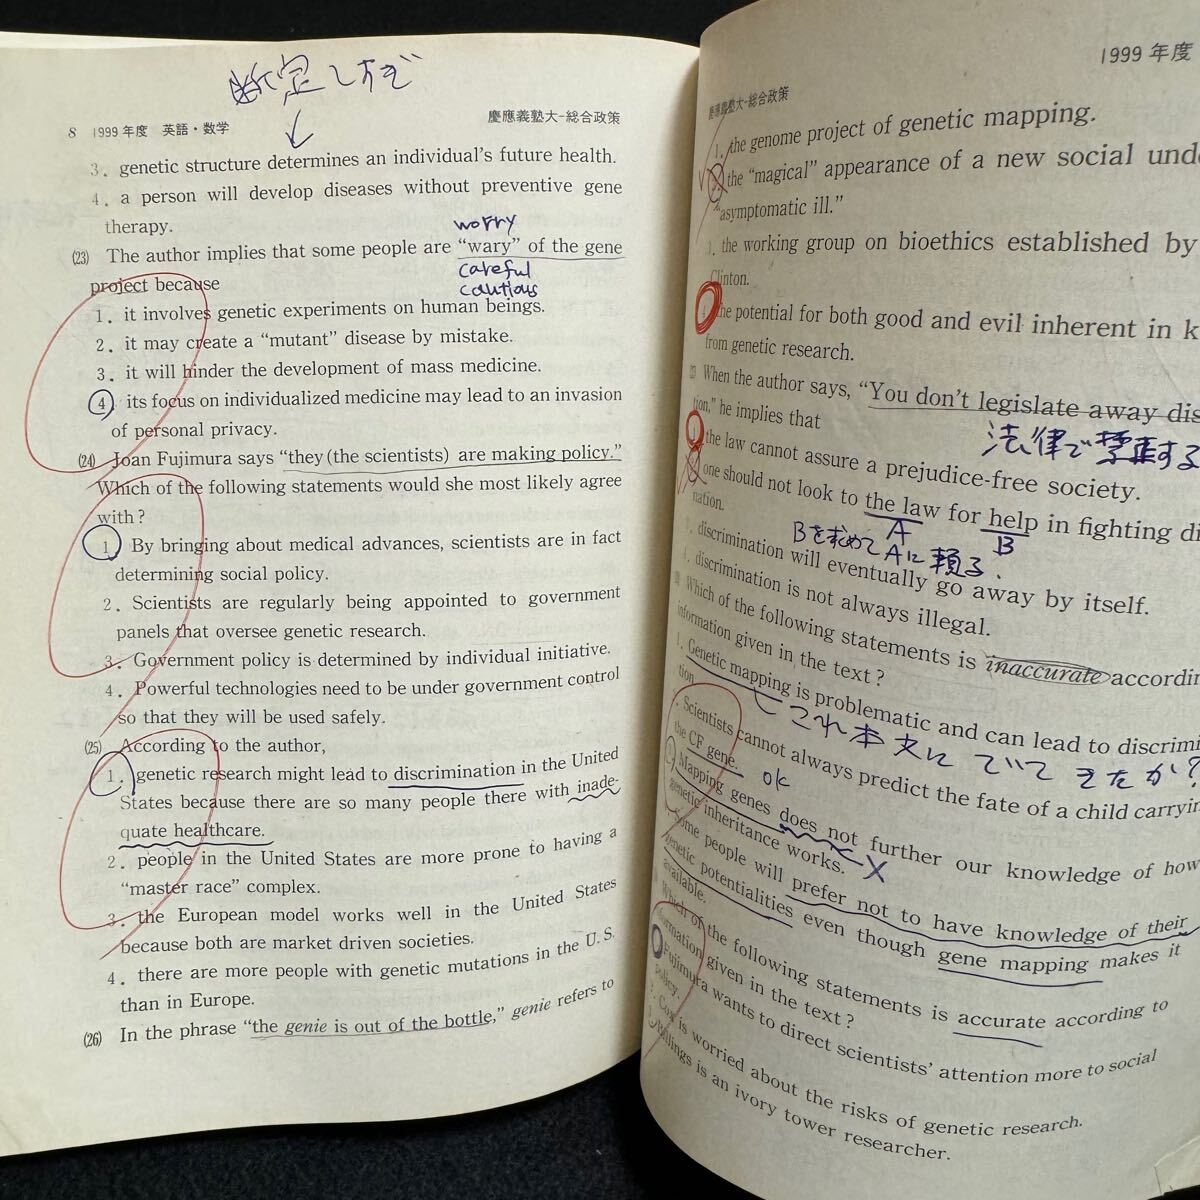 断定しすぎ
8 1999年度 英語・数学
慶應義塾大-総合政策
3. genetic structure determines an individual's future health.
4. a person will develop diseases without preventive gene
therapy.
worry
(23) The author implies that some people are "wary" of the gene
careful
project because
cautious
1. it involves genetic experiments on human beings.
2. it may create a "mutant" disease by mistake.
3. it will hinder the development of mass medicine.
4. its focus on individualized medicine may lead to an invasion
of personal privacy.
(24) Joan Fujimura says "they (the scientists) are making policy."
Which of the following statements would she most likely agree
with?
1. By bringing about medical advances, scientists are in fact
determining social policy.
2. Scientists are regularly being appointed to government
panels that oversee genetic research.
3. Government policy is determined by individual initiative.
4. Powerful technologies need to be under government control
so that they will be used safely.
(25) According to the author,
1. genetic research might lead to discrimination in the United
States because there are so many people there with inade-
quate healthcare.
2. people in the United States are more prone to having a
"master race" complex.
3. the European model works well in the United States
because both are market driven societies.
4. there are more people with genetic mutations in the U.S.
than in Europe.
(26) In the phrase "the genie is out of the bottle," genie refers to
1999年度
慶應義塾大-総合政策
1. the genome project of genetic mapping.
2. the "magical" appearance of a new social
"asymptomatic ill."
3. the working group on bioethics established by
Clinton.
4. the potential for both good and evil inherent in
from genetic research.
When the author says, "You don't legislate away
tion," he implies that
法律で禁止する
1. the law cannot assure a prejudice-free society.
one should not look to the law for help in fighting
A
B
nation.
Bを求めてAに頼る.
discrimination will eventually go away by itself.
4. discrimination is not always illegal.
Which of the following statements is inaccurate
information given in the text?
1. Genetic mapping is problematic and can lead to
tion
これ本文にでてきたか?
Scientists cannot always predict the fate of a child
the CF gene.
OK
Mapping genes does not further our knowledge of how
genetic inheritance works.
X
some people will prefer not to have knowledge of their
genetic potentialities even though gene mapping makes it
available.
Which of the following statements is accurate according to
information given in the text?
Fujimura wants to direct scientists' attention more to social
policy.
Cox is worried about the risks of genetic research.
Billings is an ivory tower researcher.